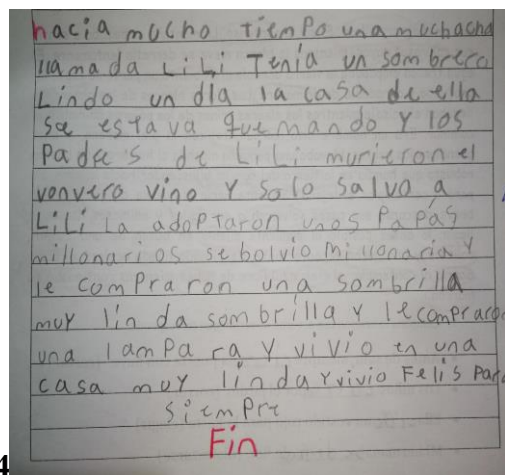 hacia mucho tiempo una muchacha
llamada LiLi Tenía un sombrero
Lindo un dIa la casa de ella
se estava quemando y los
Padres de LiLi murieron el
vonvero vino y solo salvo a
LiLi la adoptaron unos Papás
millonarios se bolvio millonaria y
le compraron una sombrilla
muy linda sombrilla y le compraron
una lampara y vivio en una
casa muy linda y vivio Felis para
siempre
Fin
4